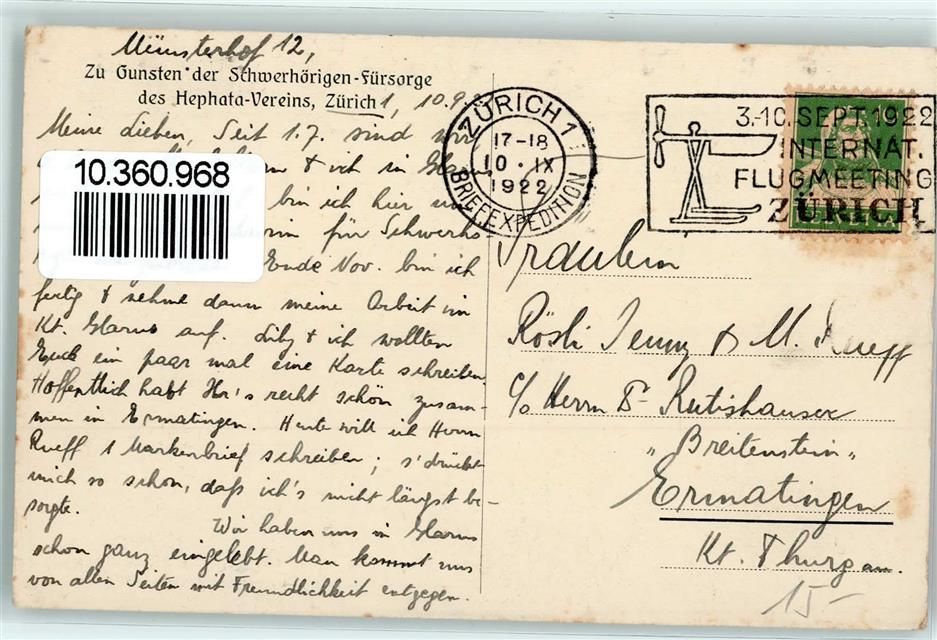 Münsterhof 12,
Zu Gunsten der Schwerhörigen-Fürsorge
des Hephata-Vereins, Zürich 1, 10.9.
Meine Lieben, Seit 1.7. sind wir
& ich in Glarus
bin ich hier
für Schwerhö
Ende Nov. bin ich
fertig & nehme dann meine Arbeit im
Kt. Glarus auf. Lily & ich wollten
Euch ein paar mal eine Karte schreiben.
Hoffentlich habt Ihr's recht schön zusam-
men in Ermatingen. Heute will ich Herrn
Rueff 1 Markenbrief schreiben; s'drückt
mich so schon, daß ich's nicht längst be-
sorgte.
Wir haben uns in Glarus
schon ganz eingelebt. Man kommt uns
von allen Seiten mit Freundlichkeit entgegen.
10.360.968
ZÜRICH 1
17-18
10. IX
1922
BRIEFEXPEDITION
3.-10. SEPT. 1922
INTERNAT.
FLUGMEETING
ZÜRICH
HELVETIA
Fräulein
Rösli Jenny & M. Rueff
c/o Herrn Rutishauser
„Breitenstein„
Ermatingen
Kt. Thurgau.
15-